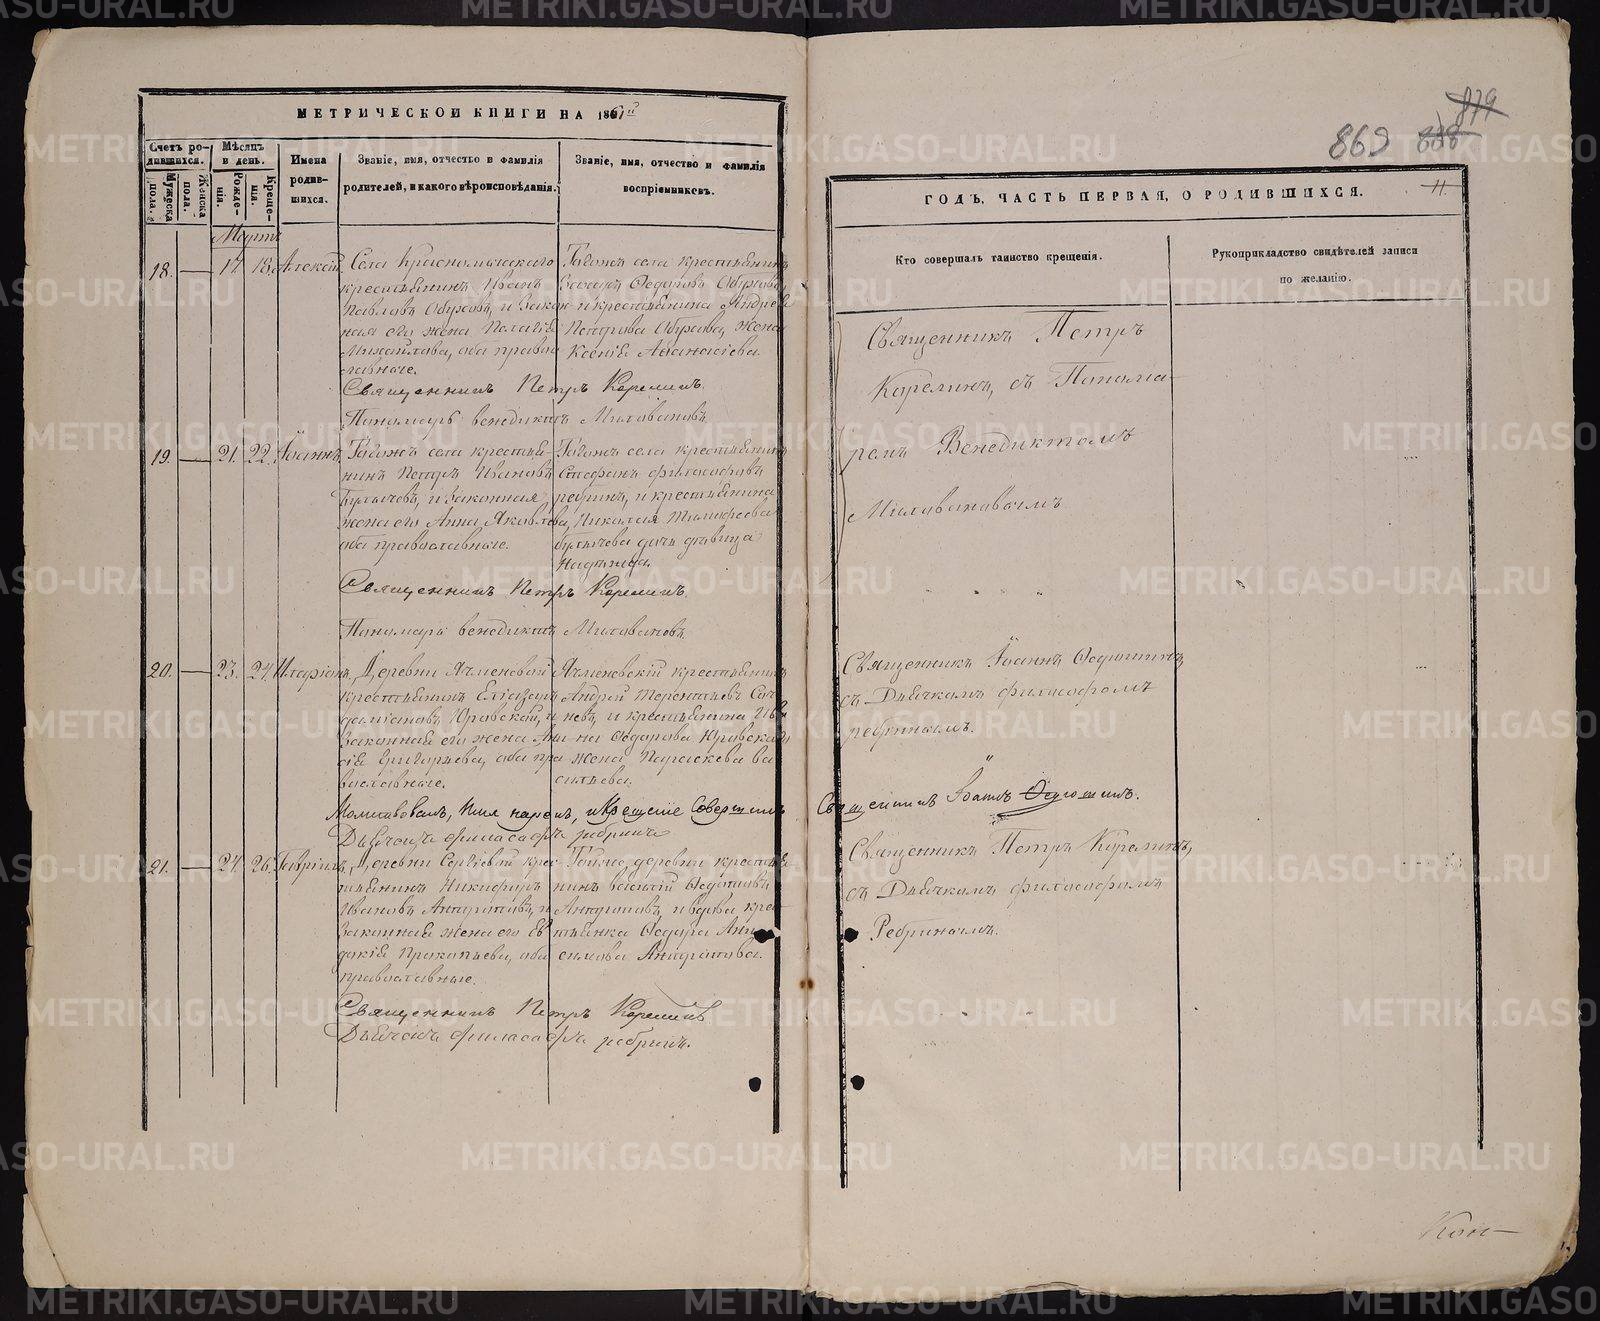 МЕТРИЧЕСКОЙ КНИГИ НА 1861й
Счетъ ро-
дившихся.
Мужеска
пола.
Женска
пола.
Мѣсяцъ
и день.
Рожде-
нія.
Креще-
нія.
Имена
родив-
шихся.
Званіе, имя, отчество и фамилія
родителей, и какого вѣроисповѣданія.
Званіе, имя, отчество и фамилія
воспріемниковъ.
Мартъ
18. — 17. 18. Алексѣй.
Села Крестьянинъ Иванъ
Павловъ Обуховъ, и Закон
ная его жена Пелагія
Михайлова, оба право
славные.
Тогожъ села крестьянинъ
Захаръ Ѳедоровъ Обуховъ,
и крестьянина Андрея
Петрова Обухова, жена
Ксенія Аѳанасіева.
Священникъ Петръ Карелинъ.
Пономарь Венедиктъ Миловановъ.
19. — 21. 22. Іоаннъ,
Тогожъ села крестья-
нинъ Петръ Ивановъ
Булычевъ, и Законная
жена его Анна Яковлева,
оба православные.
Тогожъ села крестьянинъ
Стефанъ Филосоѳовъ
Ребринъ, и крестьянина
Николая Тимоѳеева
Булычева дочь дѣвица
Надежда.
Священникъ Петръ Карелинъ.
Пономарь Венедиктъ Миловановъ.
20. — 23. 24. Иларіонъ,
Деревни Ячменевой
крестьянинъ Еліазаръ
Даміановъ Юровской, и
Законная его жена Ани
сія Григорьева, оба пра
вославные.
Ячменевскій крестьянинъ
Андрей Терентьевъ
и крестьянина
Ѳедорова Юровскаго
жена Параскева Ва
сильева.
Молитвовалъ, Имя нарекъ, и Крещеніе Совершилъ Священникъ Іоаннъ
Дьячокъ Филасофъ Ребринъ
21. — 24. 26. Гавріилъ,
Деревни крес-
тьянинъ Никифоръ
Ивановъ и
Законная жена его Ев
докія Прокопьева, оба
православные.
Тойже деревни крестья
нинъ Василій Ѳедотовъ
и вдова крес
тьянка Ѳедора Ани
симова
Священникъ Петръ Карелинъ
Дьячокъ Филасофъ Ребринъ.
869 838 879
ГОДЪ, ЧАСТЬ ПЕРВАЯ, О РОДИВШИХСЯ.
11.
Кто совершалъ таинство крещенія.
Рукоприкладство свидѣтелей записи
по желанію.
Священникъ Петръ
Карелинъ, съ Понома-
ремъ Венедиктомъ
Миловановымъ
Священникъ Іоаннъ
съ Дьячкомъ Философомъ
Ребринымъ.
Священникъ Петръ Карелинъ,
съ Дьячкомъ Филосафомъ
Ребринымъ.
Кон-
METRIKI.GASO-URAL.RU